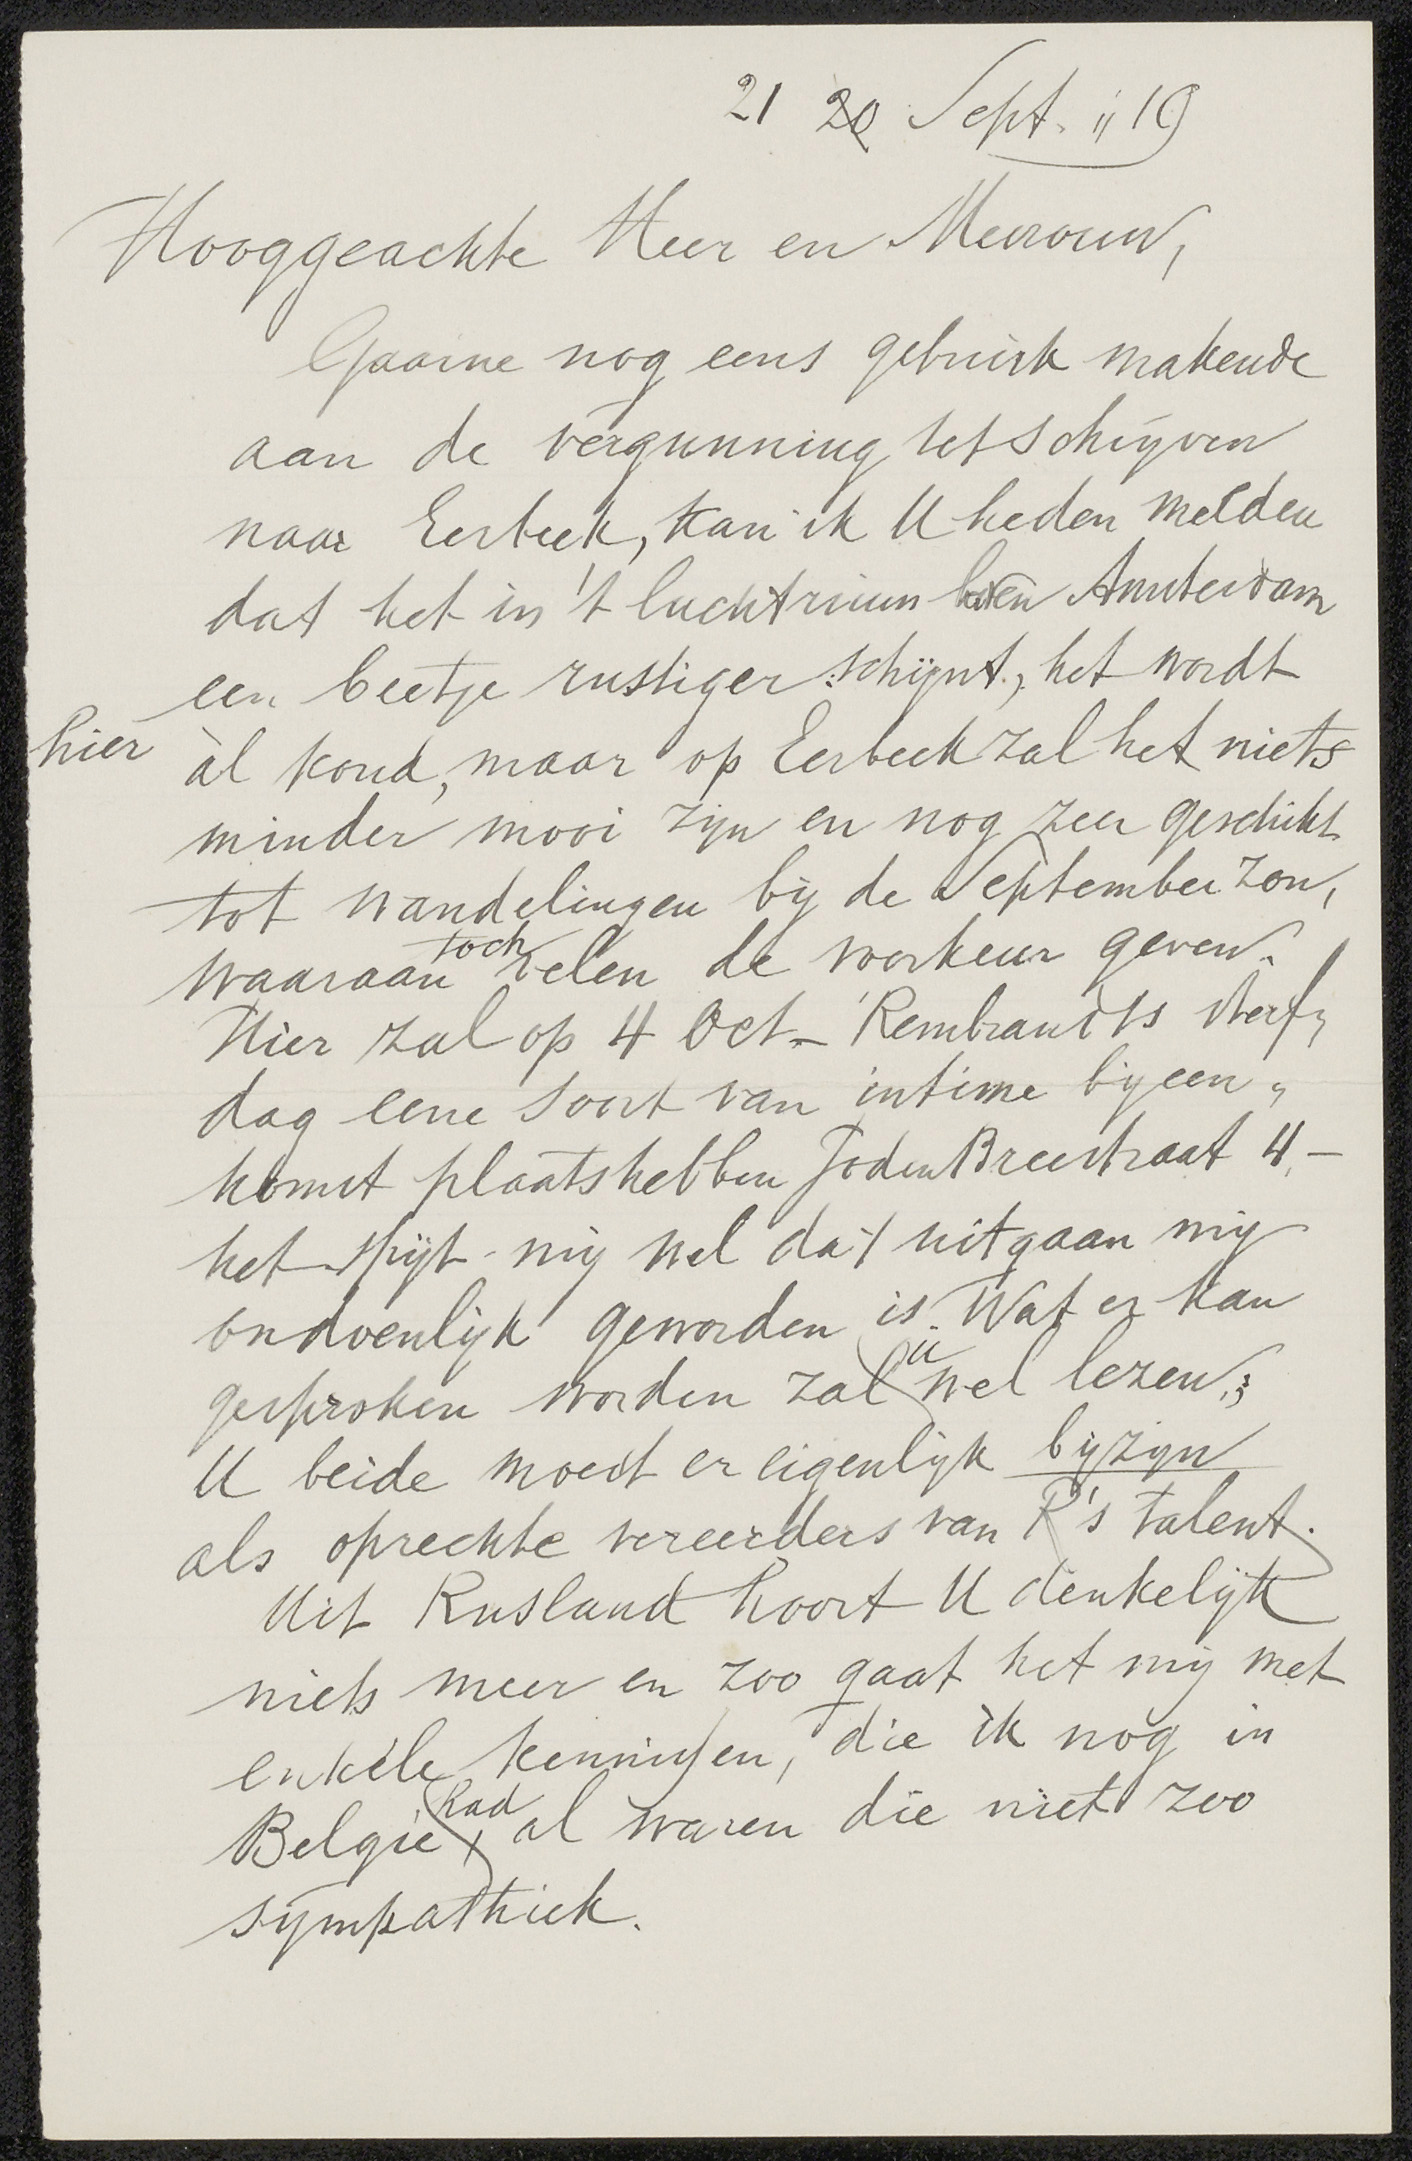 21 20 Sept. '' 19
Hooggeachte Heer en Mevrouw,
Gaarne nog eens gebruik makende
aan de vergunning tot schijven
naar Eerbeek, kan ik U heden melden
dat het in 't luchtruim boven Amsterdam
een beetje rustiger schijnt, het wordt
hier àl koud, maar op Eerbeek zal het niets
minder mooi zijn en nog zeer geschikt
tot wandelingen bij de September zon,
waaraan toch velen de voorkeur geven.
Hier zal op 4 Oct - Rembrandts sterf„
dag eene soort van intime bijeen„
komst plaatshebben JodenBreestraat 4, -
het spijt mij wel dat uitgaan mij
ondoenlijk geworden is. Wat er kan
gesproken worden zal U wel lezen;
U beide moest er eigenlijk bijzijn
als oprechte vereerders van R's talent.
Uit Rusland hoort U denkelijk
niets meer en zoo gaat het mij met
enkele kennissen, die ik nog in
Belgie had, al waren die niet zoo
sympathiek.